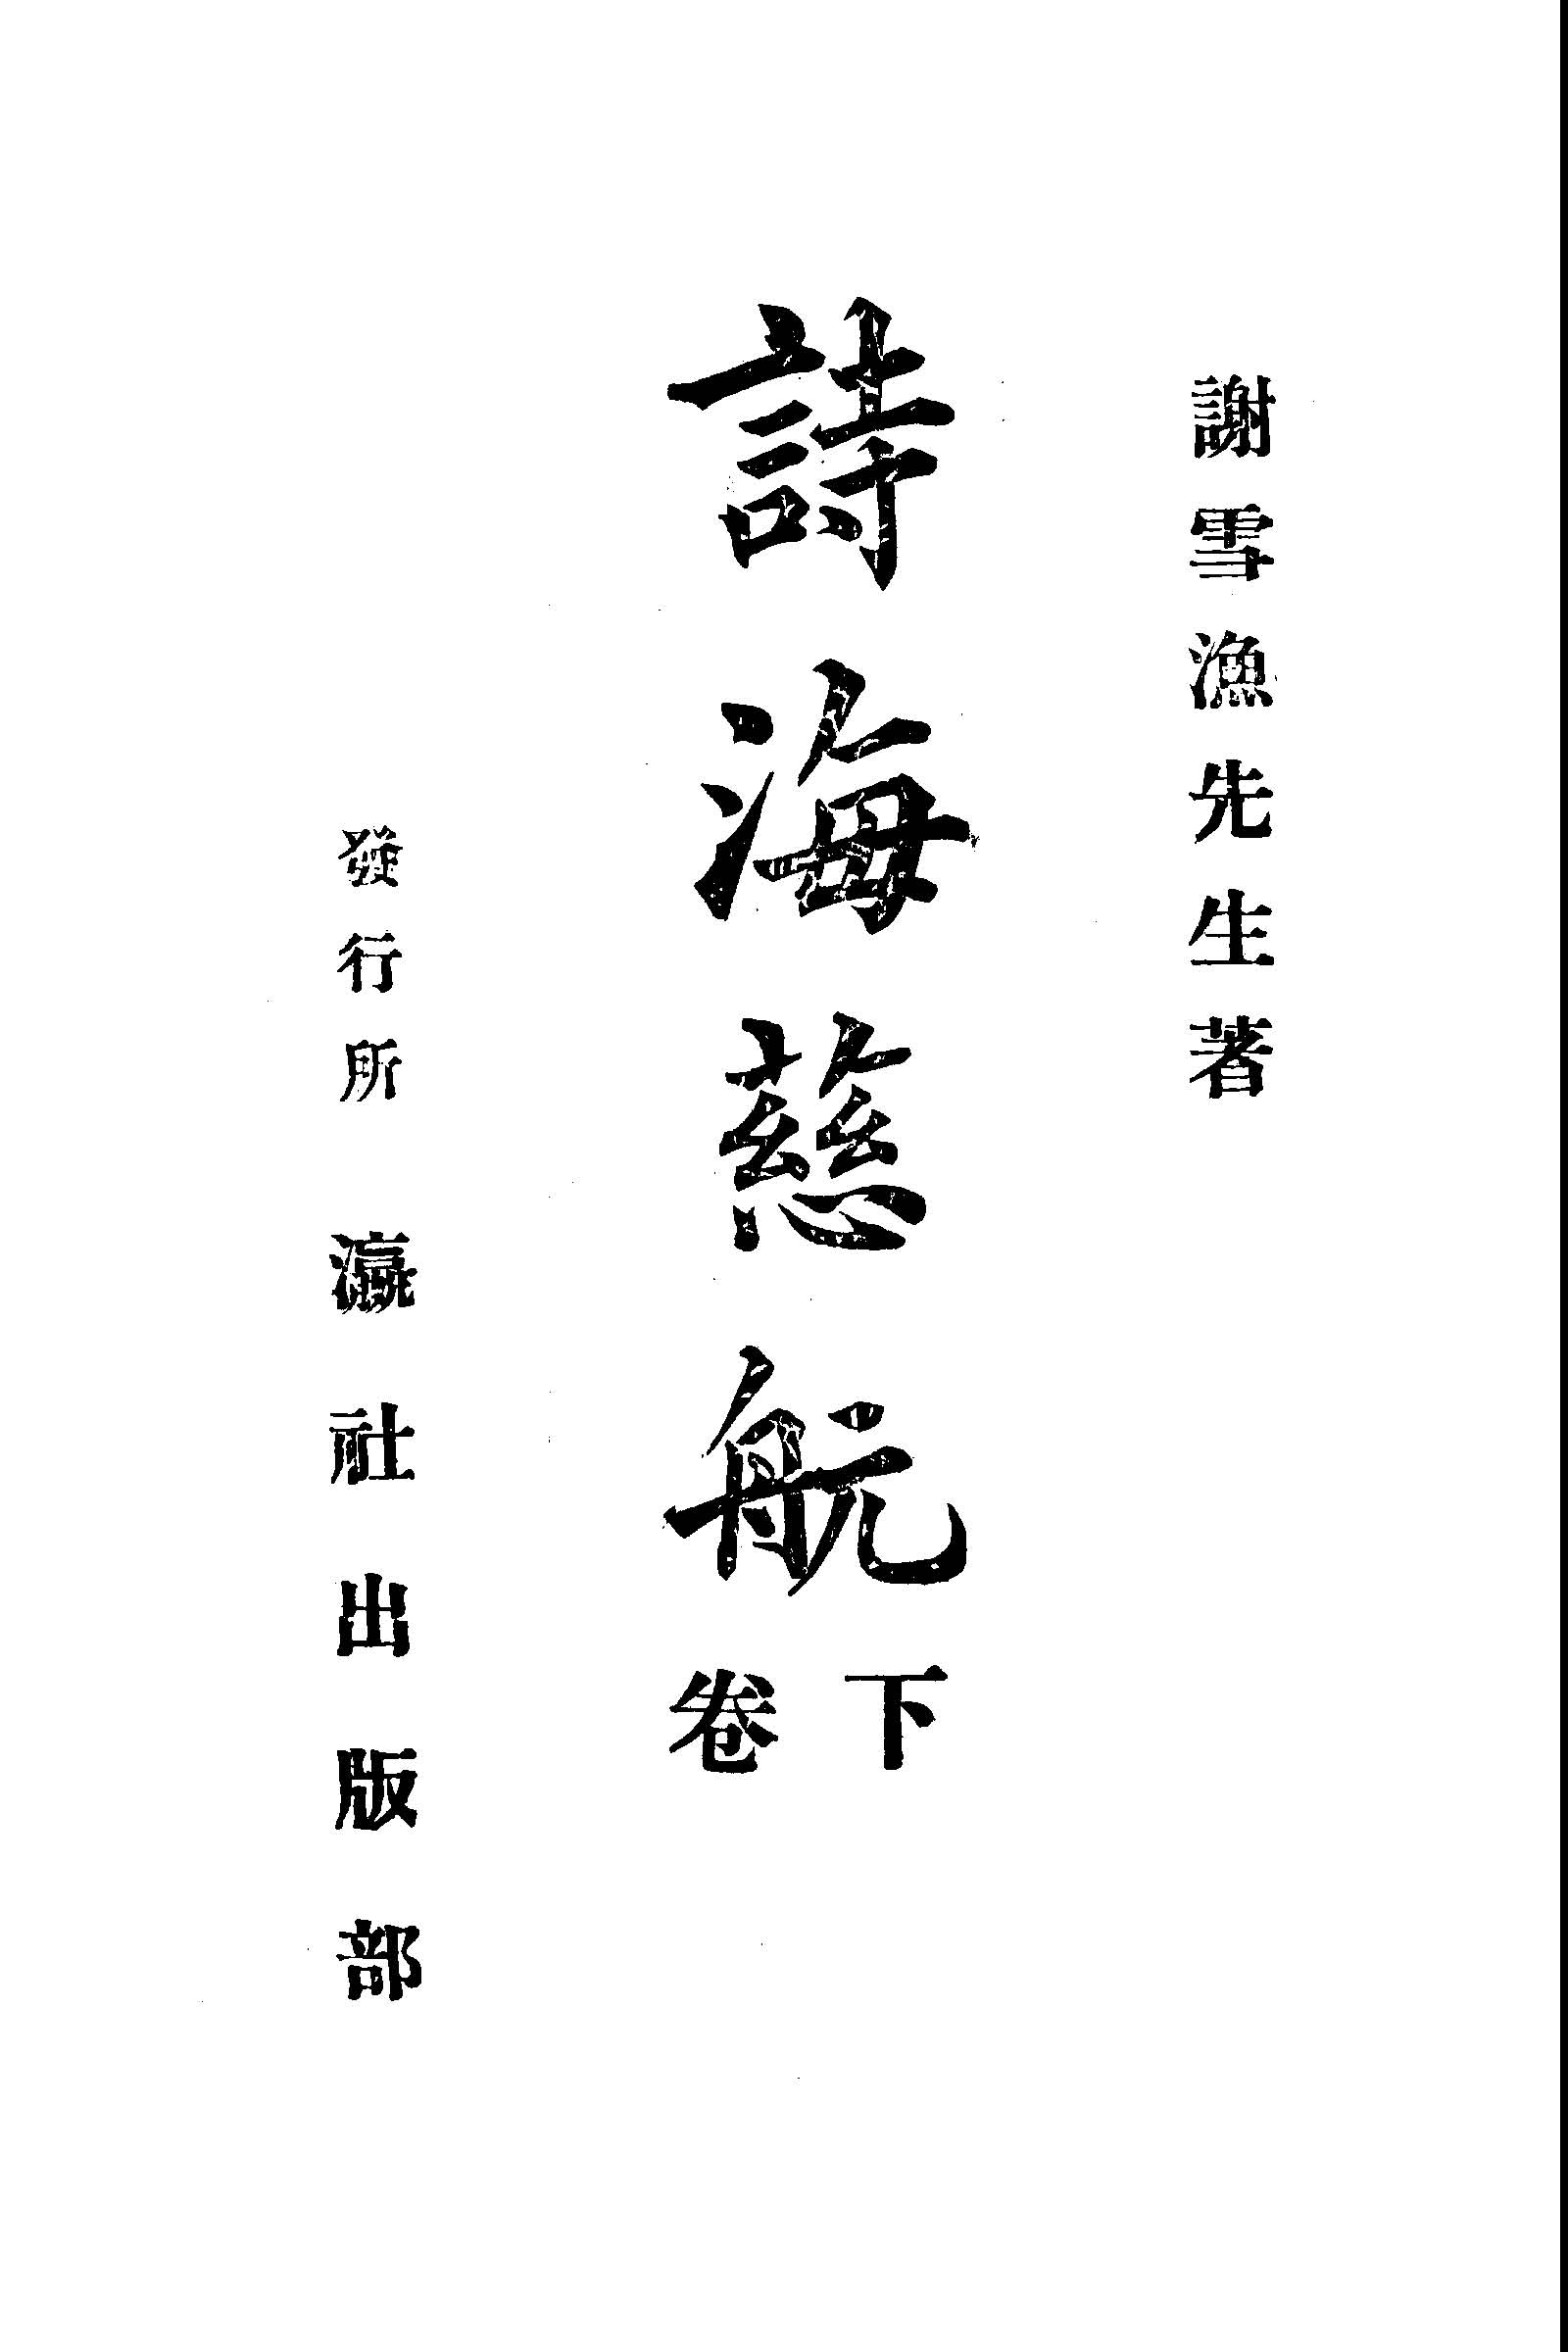 謝雪漁先生著
詩海慈航 下卷
發行所 瀛社出版部